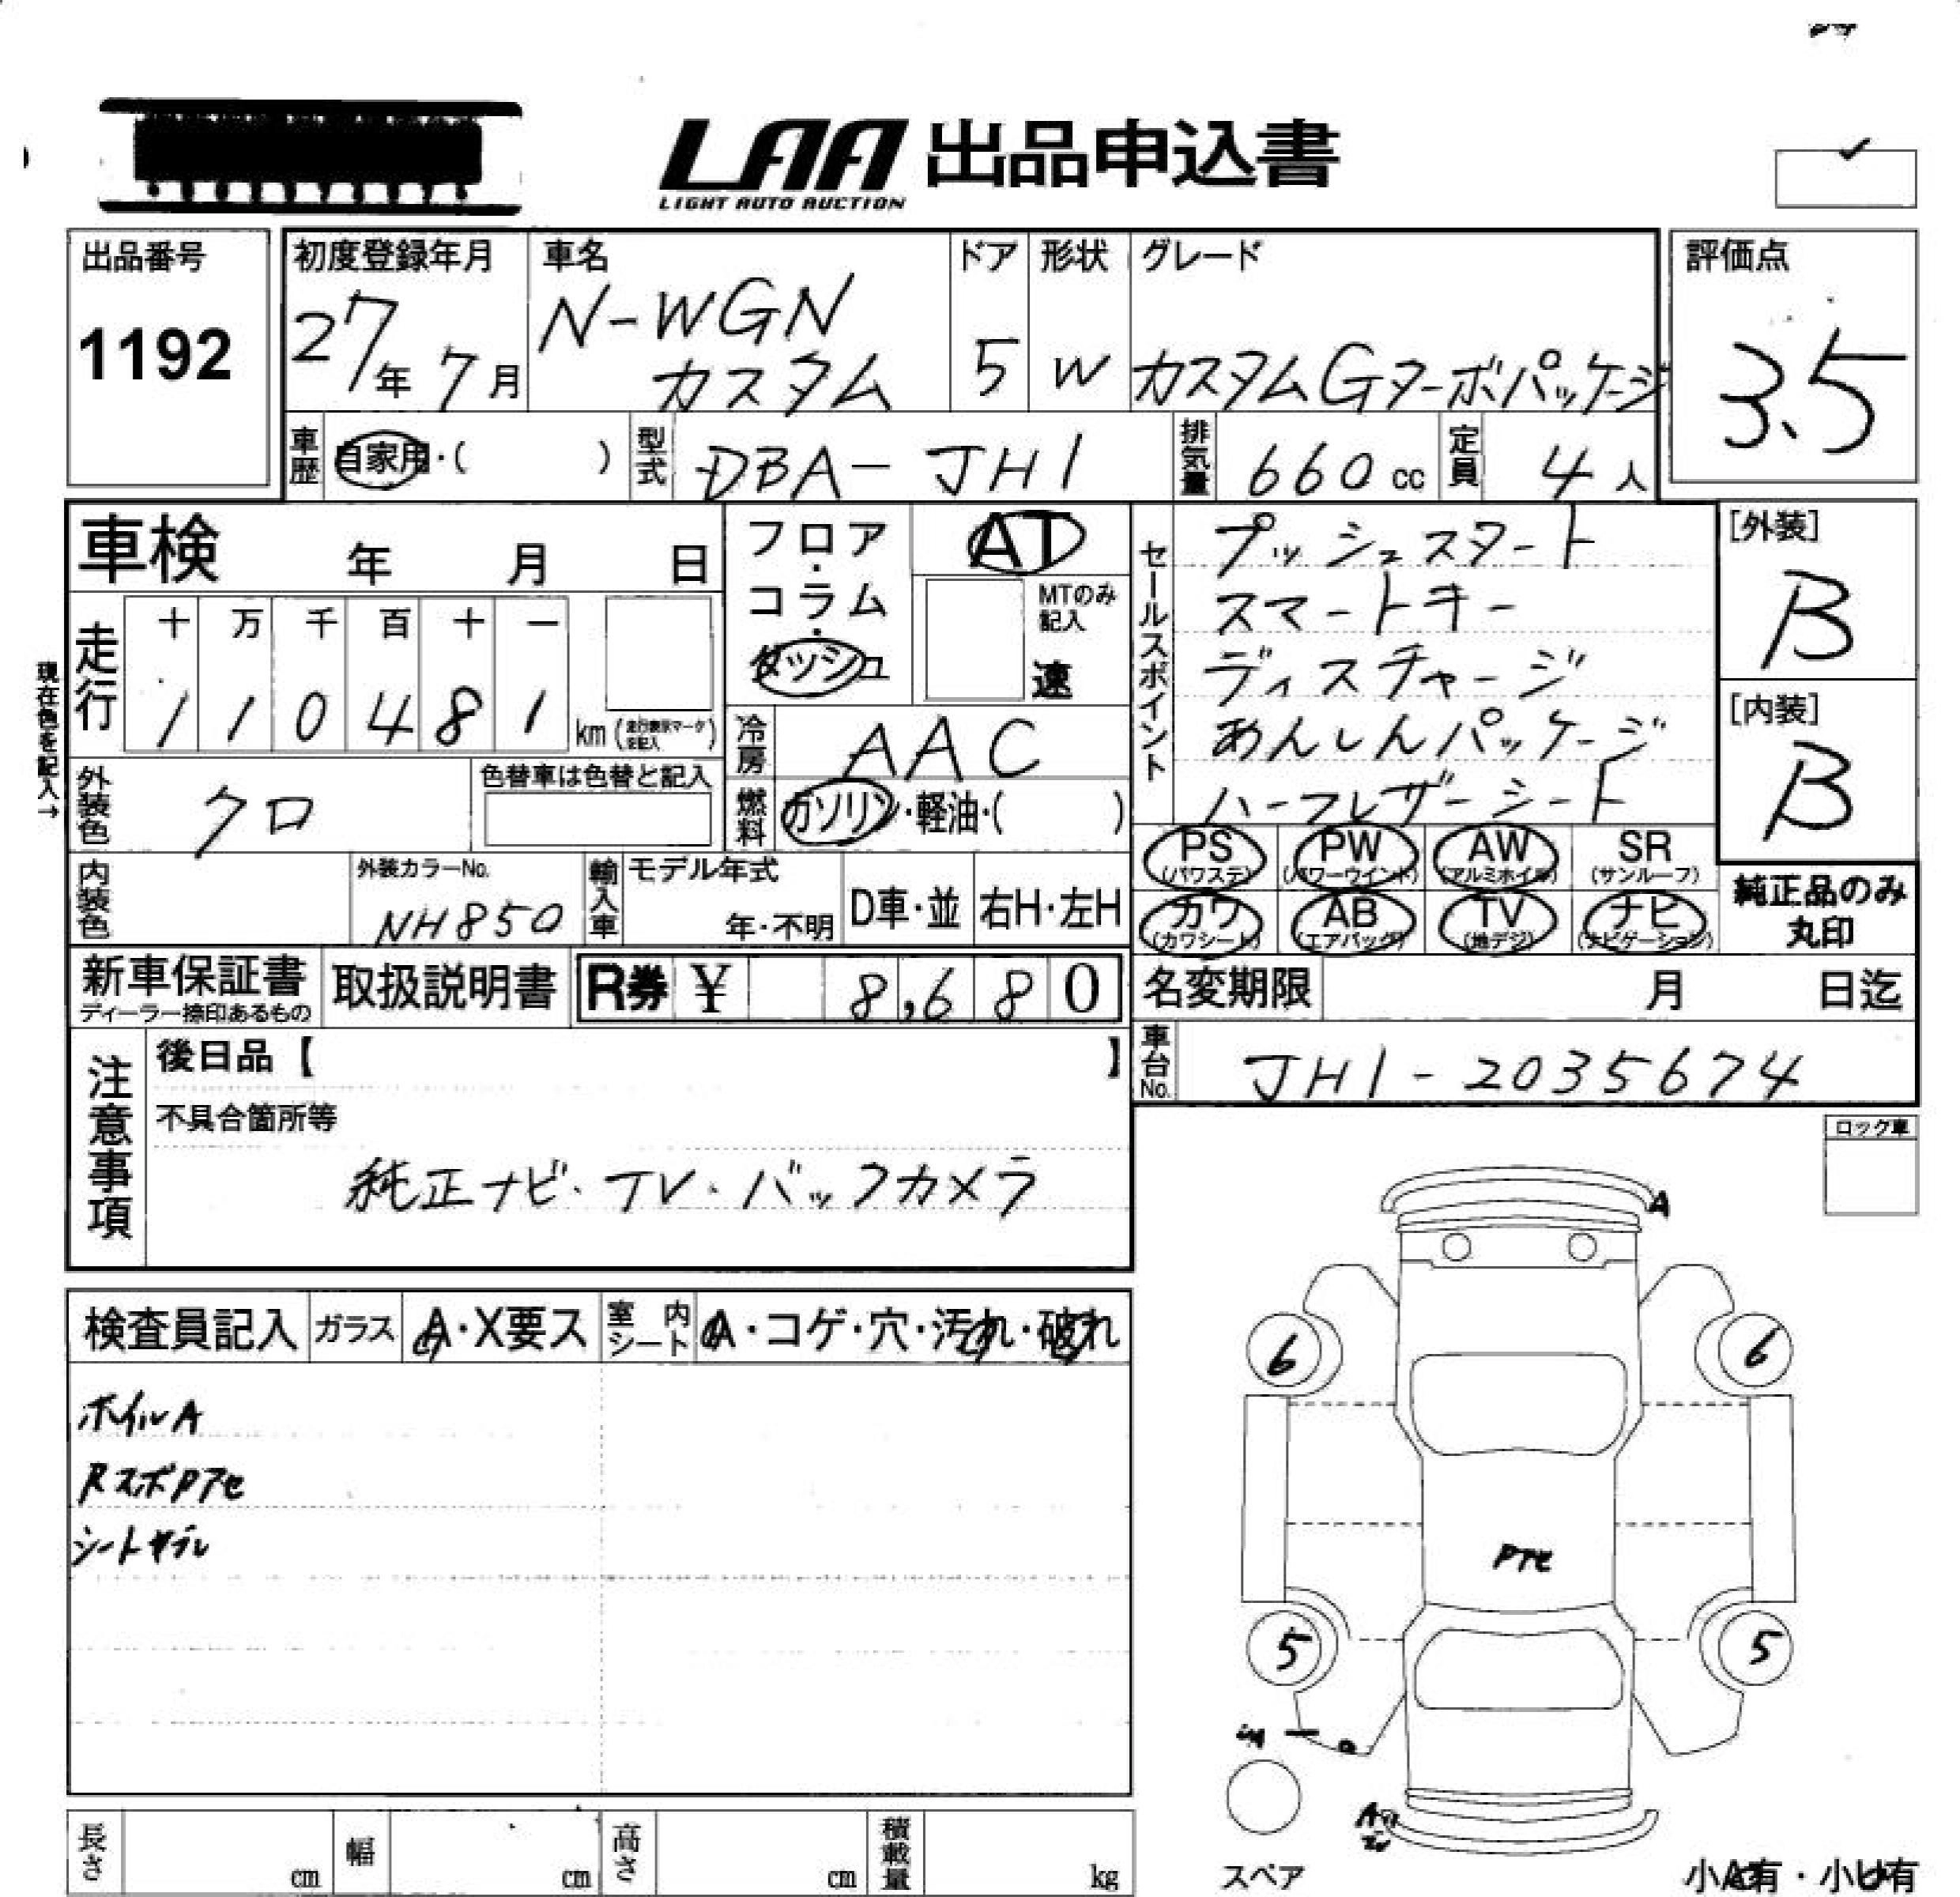 LAA 出品申込書
LIGHT AUTO AUCTION
出品番号 初度登録年月 車名 ドア 形状 グレード 評価点
1192 27年7月 N-WGN カスタム 5 W カスタムGターボパッケージ 3.5
車歴 自家用・( ) 型式 DBA-JH1 排気量 660cc 定員 4人
車検 年 月 日
フロア・コラム・ダッシュ
AT
MTのみ記入
速
セールスポイント
プッシュスタート
スマートキー
ディスチャージ
あんしんパッケージ
ハーフレザーシート
[外装]
B
[内装]
B
現在色を記入→
走行 十 万 千 百 十 一
1 1 0 4 8 1 km
冷房 AAC
外装色 クロ 色替車は色替と記入
燃料 ガソリン・軽油・( )
PS (パワステ) PW (パワーウインド) AW (アルミホイル) SR (サンルーフ)
カワ (カワシート) AB (エアバッグ) TV (地デジ) ナビ (ナビゲーション)
純正品のみ
丸印
内装色 外装カラーNo. NH850 輸入車 モデル年式 年・不明 D車・並 右H・左H
新車保証書 ディーラー捺印あるもの 取扱説明書 R券 ¥ 8,680
名変期限 月 日迄
車台No. JH1-2035674
注意事項
後日品【 】
不具合箇所等
純正ナビ・TV・バックカメラ
ロック車
検査員記入 ガラス A・X要ス 室内シート A・コゲ・穴・汚れ・破れ
ホイルA
RスポPアセ
シートヤブレ
A
6 6
Pアセ
5 5
スペア
小A有・小U有
長さ cm 幅 cm 高さ cm 積載量 kg